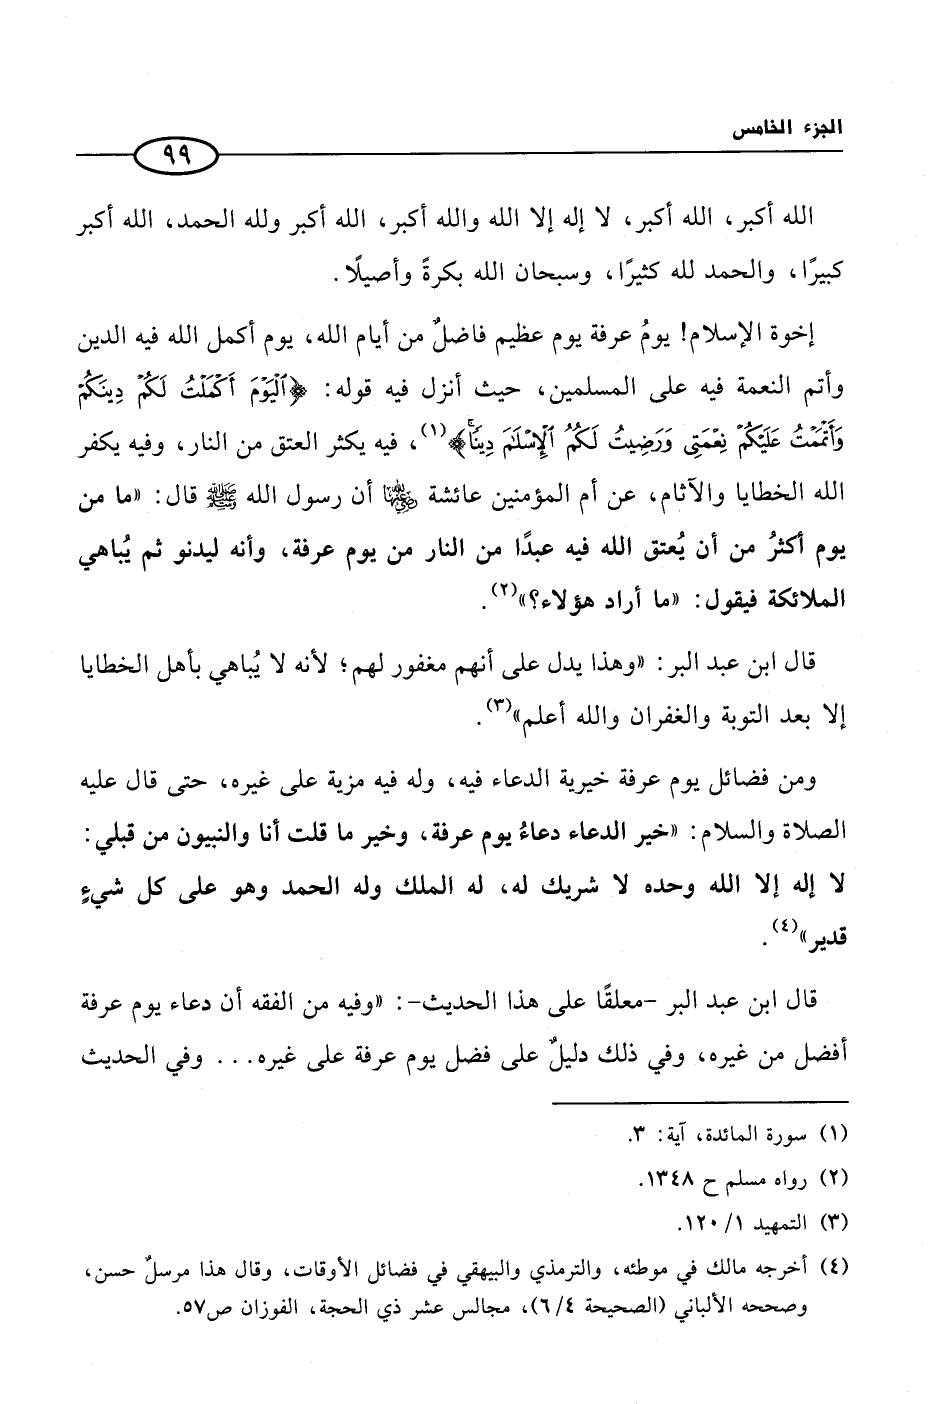 الجزء الخامس
٩٩
الله أكبر، الله أكبر، لا إله إلا الله والله أكبر، الله أكبر ولله الحمد، الله أكبر
كبيرًا، والحمد لله كثيرًا، وسبحان الله بكرةً وأصيلًا.
إخوة الإسلام! يومُ عرفة يوم عظيم فاضلٌ من أيام الله، يوم أكمل الله فيه الدين
وأتم النعمة فيه على المسلمين، حيث أنزل فيه قوله: ﴿ٱلْيَوْمَ أَكْمَلْتُ لَكُمْ دِينَكُمْ
وَأَتْمَمْتُ عَلَيْكُمْ نِعْمَتِى وَرَضِيتُ لَكُمُ ٱلْإِسْلَٰمَ دِينًاۚ﴾(١)، فيه يكثر العتق من النار، وفيه يكفر
الله الخطايا والآثام، عن أم المؤمنين عائشة رضي الله عنها أن رسول الله ﷺ قال: «ما من
يوم أكثرُ من أن يُعتق الله فيه عبدًا من النار من يوم عرفة، وأنه ليدنو ثم يُباهي
الملائكة فيقول: «ما أراد هؤلاء؟»(٢).
قال ابن عبد البر: «وهذا يدل على أنهم مغفور لهم؛ لأنه لا يُباهي بأهل الخطايا
إلا بعد التوبة والغفران والله أعلم»(٣).
ومن فضائل يوم عرفة خيرية الدعاء فيه، وله فيه مزية على غيره، حتى قال عليه
الصلاة والسلام: «خير الدعاء دعاءُ يوم عرفة، وخير ما قلت أنا والنبيون من قبلي:
لا إله إلا الله وحده لا شريك له، له الملك وله الحمد وهو على كل شيءٍ
قدير»(٤).
قال ابن عبد البر -معلقًا على هذا الحديث-: «وفيه من الفقه أن دعاء يوم عرفة
أفضل من غيره، وفي ذلك دليلٌ على فضل يوم عرفة على غيره... وفي الحديث
(١) سورة المائدة، آية: ٣.
(٢) رواه مسلم ح ١٣٤٨.
(٣) التمهيد ١/ ١٢٠.
(٤) أخرجه مالك في موطئه، والترمذي والبيهقي في فضائل الأوقات، وقال هذا مرسلٌ حسن،
وصححه الألباني (الصحيحة ٤/ ٦)، مجالس عشر ذي الحجة، الفوزان ص٥٧.